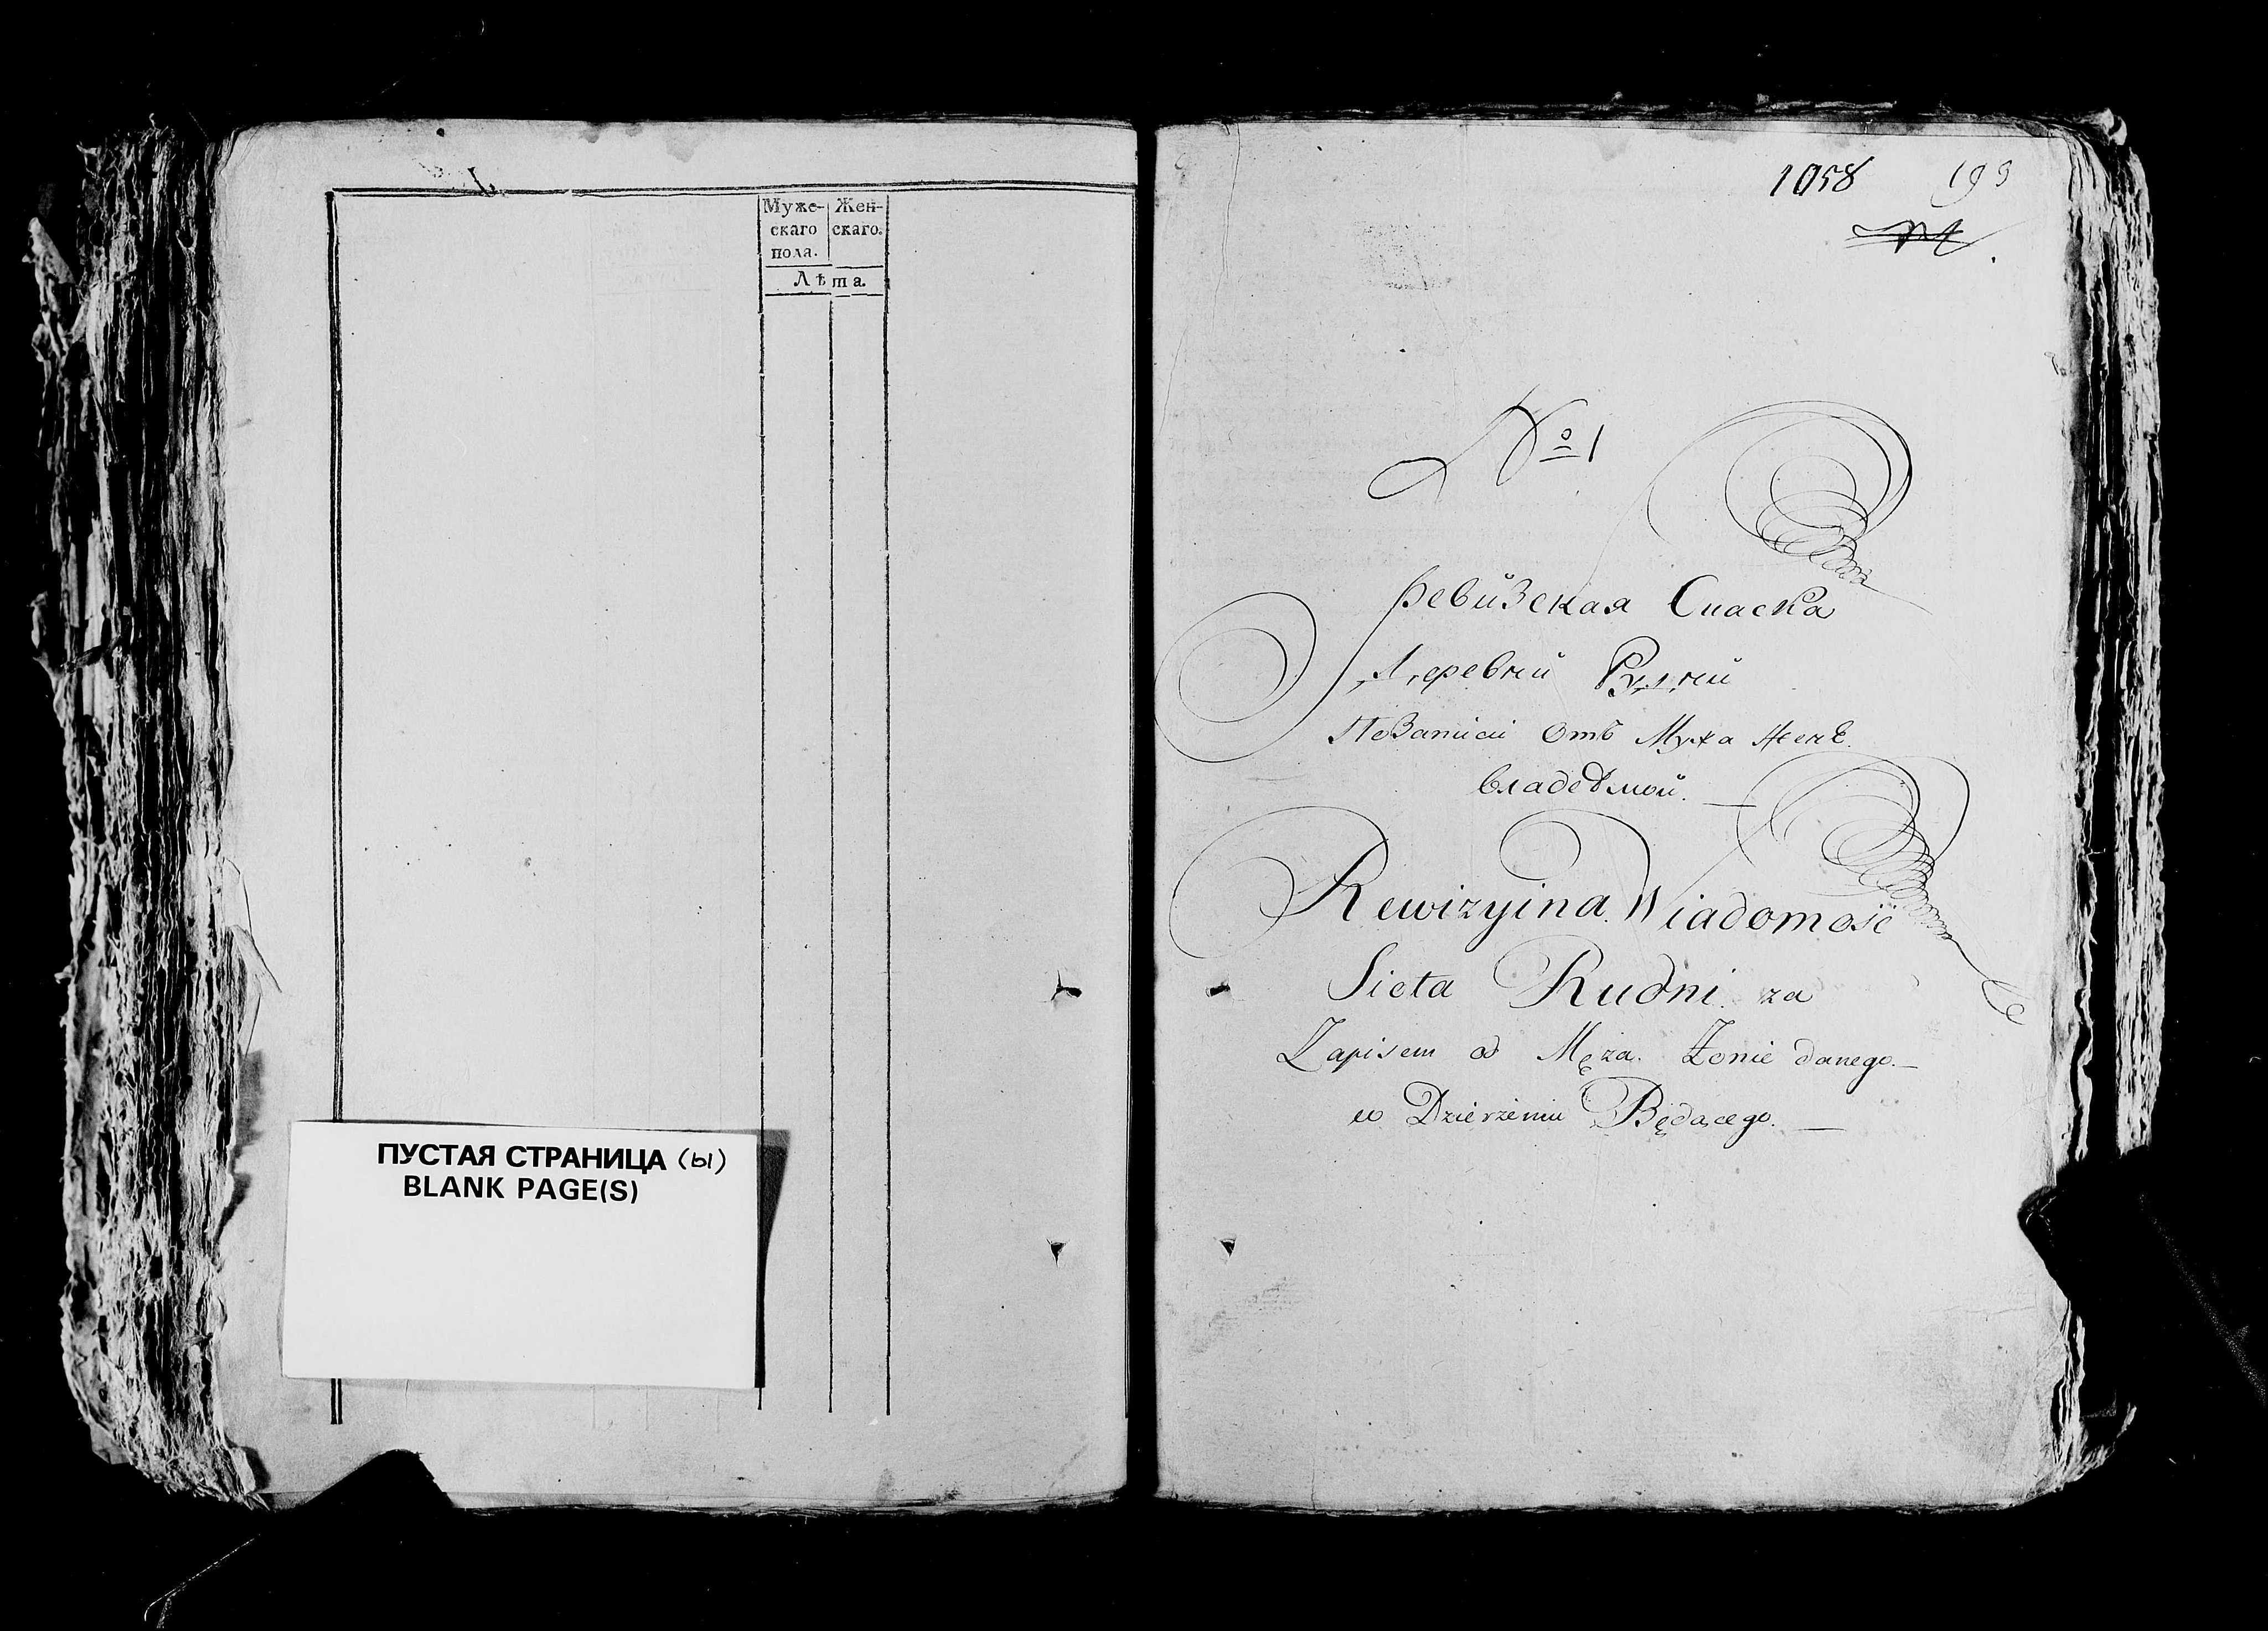 Муже-
скаго
пола.
Жен-
скаго.
Лѣта.
ПУСТАЯ СТРАНИЦА (ы)
BLANK PAGE(S)
1058 193
№ 1
Ревизская Скаска
Деревни Рудни
По Записи Отъ Мужа Женѣ
владеѣмой.
Rewizyina Wiadomość
Sieła Rudni za
Zapisem od Męża Żonie danego.
w Dzierżeniu Będącego.